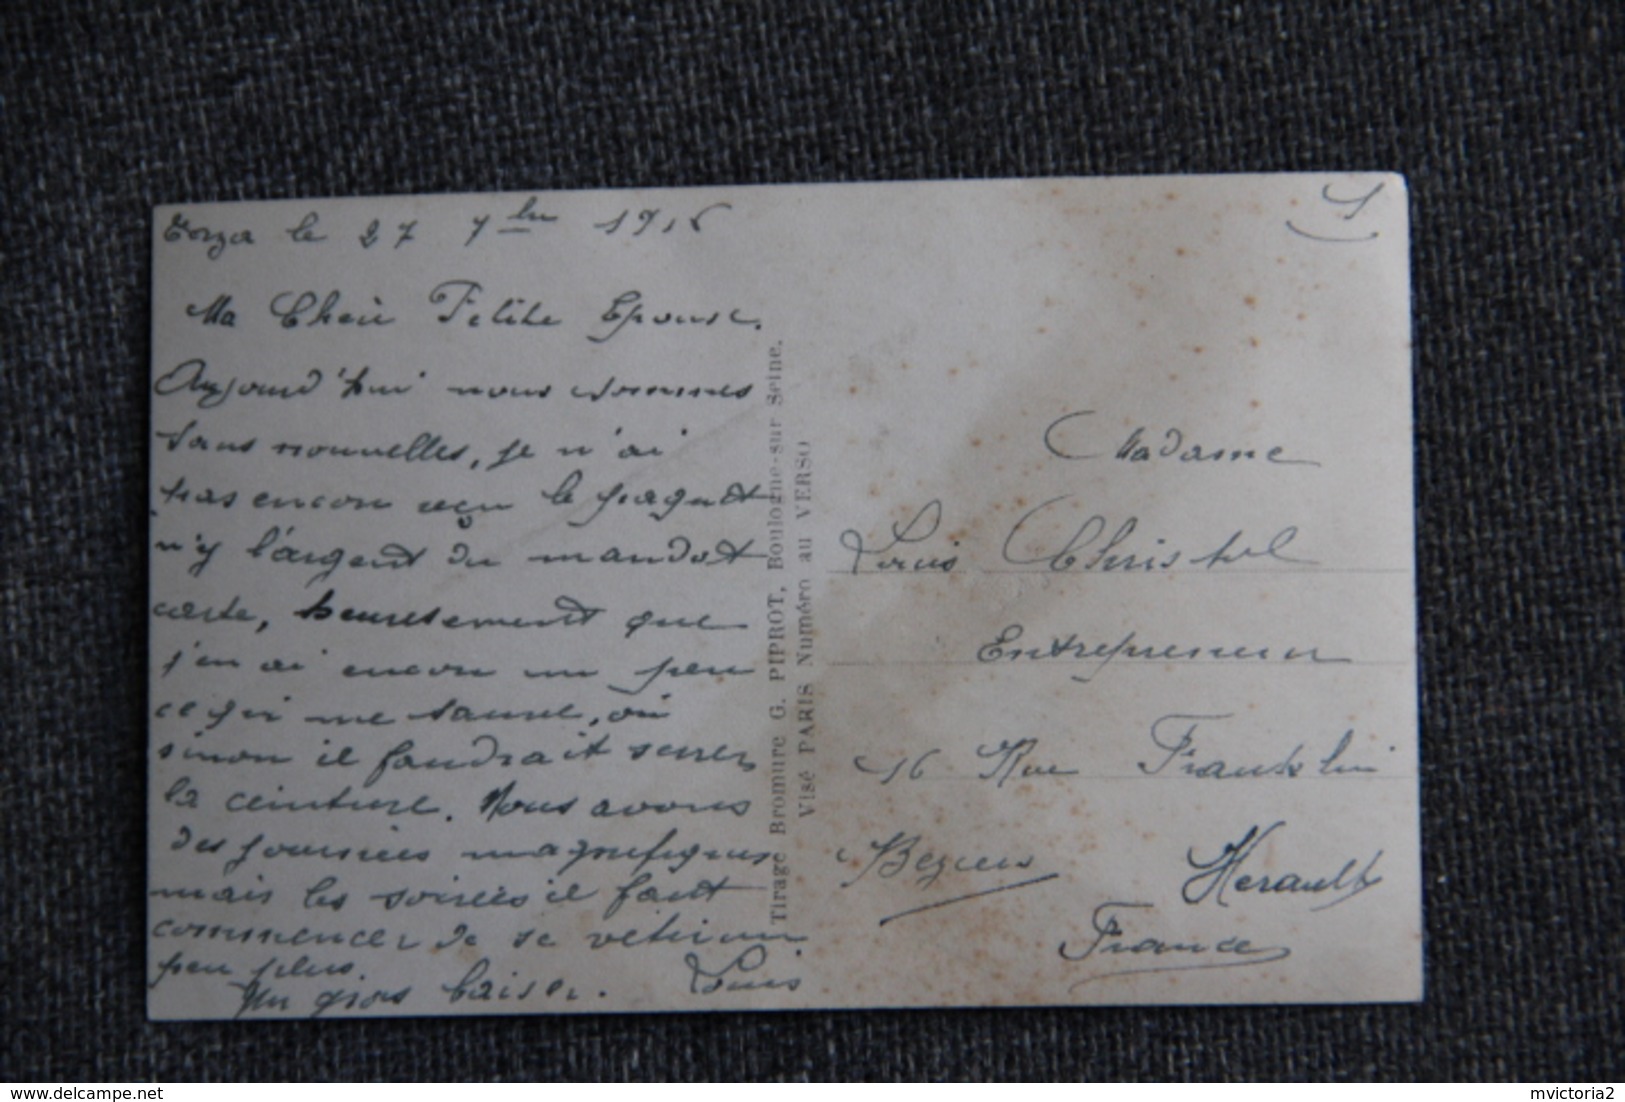 Torza le 27 7bre 1916
Ma Cheire Petite Epouse.
Aujourd'hui nous sommes
sans nouvelles, je n'ai
pas encore reçu le paquet
n'y l'argent du mandat
carte, heureusement que
j'en ai encore un peu
ce qui me sauve, ou
sinon il faudrait serrer
la ceinture. Nous avons
des journées magnifiques
mais les soirées il faut
commencer de se vétir un
peu plus.
Un gros baiser. Louis
Tirage Bromure G. PIPROT, Boulogne-sur Seine.
Visé PARIS Numéro au VERSO
1
Madame
Louis Christol
Entrepreneur
16 Rue Franklin
Beziers
Herault
France
delcampe.net
mvictoria2